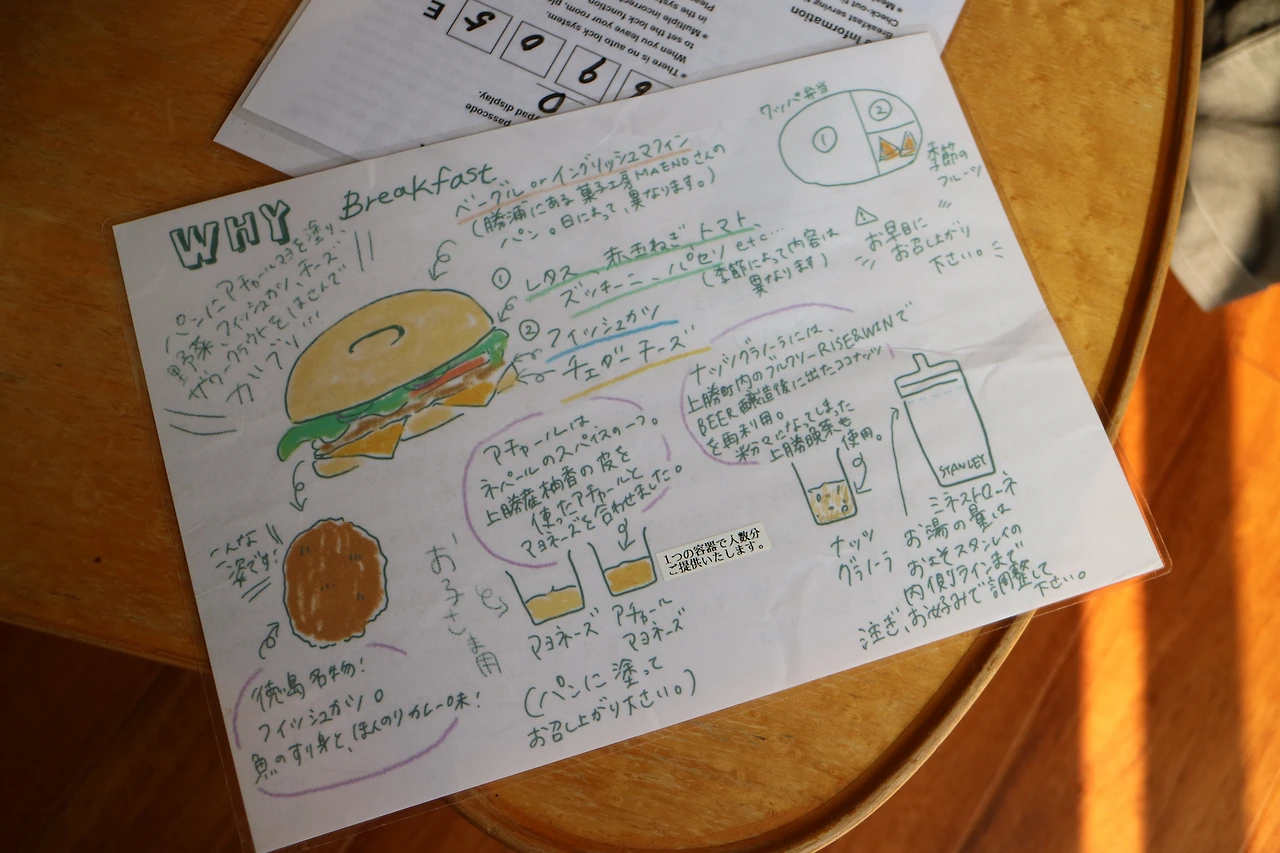 Breakfast serving
Check-out
Information
Please in the
Multiple incorrect
to set the lock function
When you leave your room, pl
There is no auto lock system.
6 9 0 5 E
0
passcode
pad display.
WHY Breakfast
ベーグル or イングリッシュマフィン
(勝浦にある菓子工房MAENOさんの
パン。日によって、異なります。)
ワッパ弁当
①
②
季節の
フルーツ
⚠
お早目に
お召し上がり
下さい。
パンにアチャールマヨを塗り、
野菜、フィッシュカツ、チーズ
ザワークラウトをはさんで
ガブリ!!!
① レタス、赤玉ねぎ、トマト、
ズッキーニ、パセリ etc…
(季節によって内容は
異なります)
② フィッシュカツ
チェダーチーズ
ナッツグラノーラには、
上勝町内のブルワリーRISE&WINで
BEER醸造後に出たココナッツ
を再利用。
粉々になってしまった
上勝晩茶も
使用。
アチャールは、
ネパールのスパイスの一つ。
上勝産柚香の皮を
使ったアチャールと
マヨネーズを合わせました。
1つの容器で人数分
ご提供いたします。
STANLEY
ナッツ
グラノーラ
ミネストローネ
お湯の量は
およそスタンレイの
内側ラインまで
注ぎ、お好みで調整して
下さい。
こんな
姿です!
お子さま用
マヨネーズ
アチャール
マヨネーズ
(パンに塗って
お召し上がり下さい。)
徳島名物!
フィッシュカツ。
魚のすり身と、ほんのりカレー味!